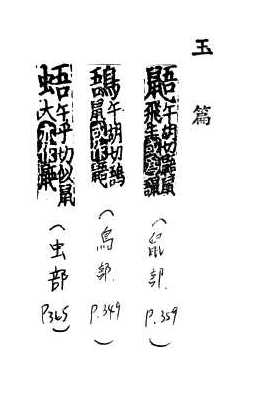 玉篇
鼯 午胡切鼯鼠
飛生
(鼠部.
P.359)
午胡切
鼠或作鼯
(鳥部.
P.349)
午乎切似鼠
大亦作鼯
(虫部
P365)